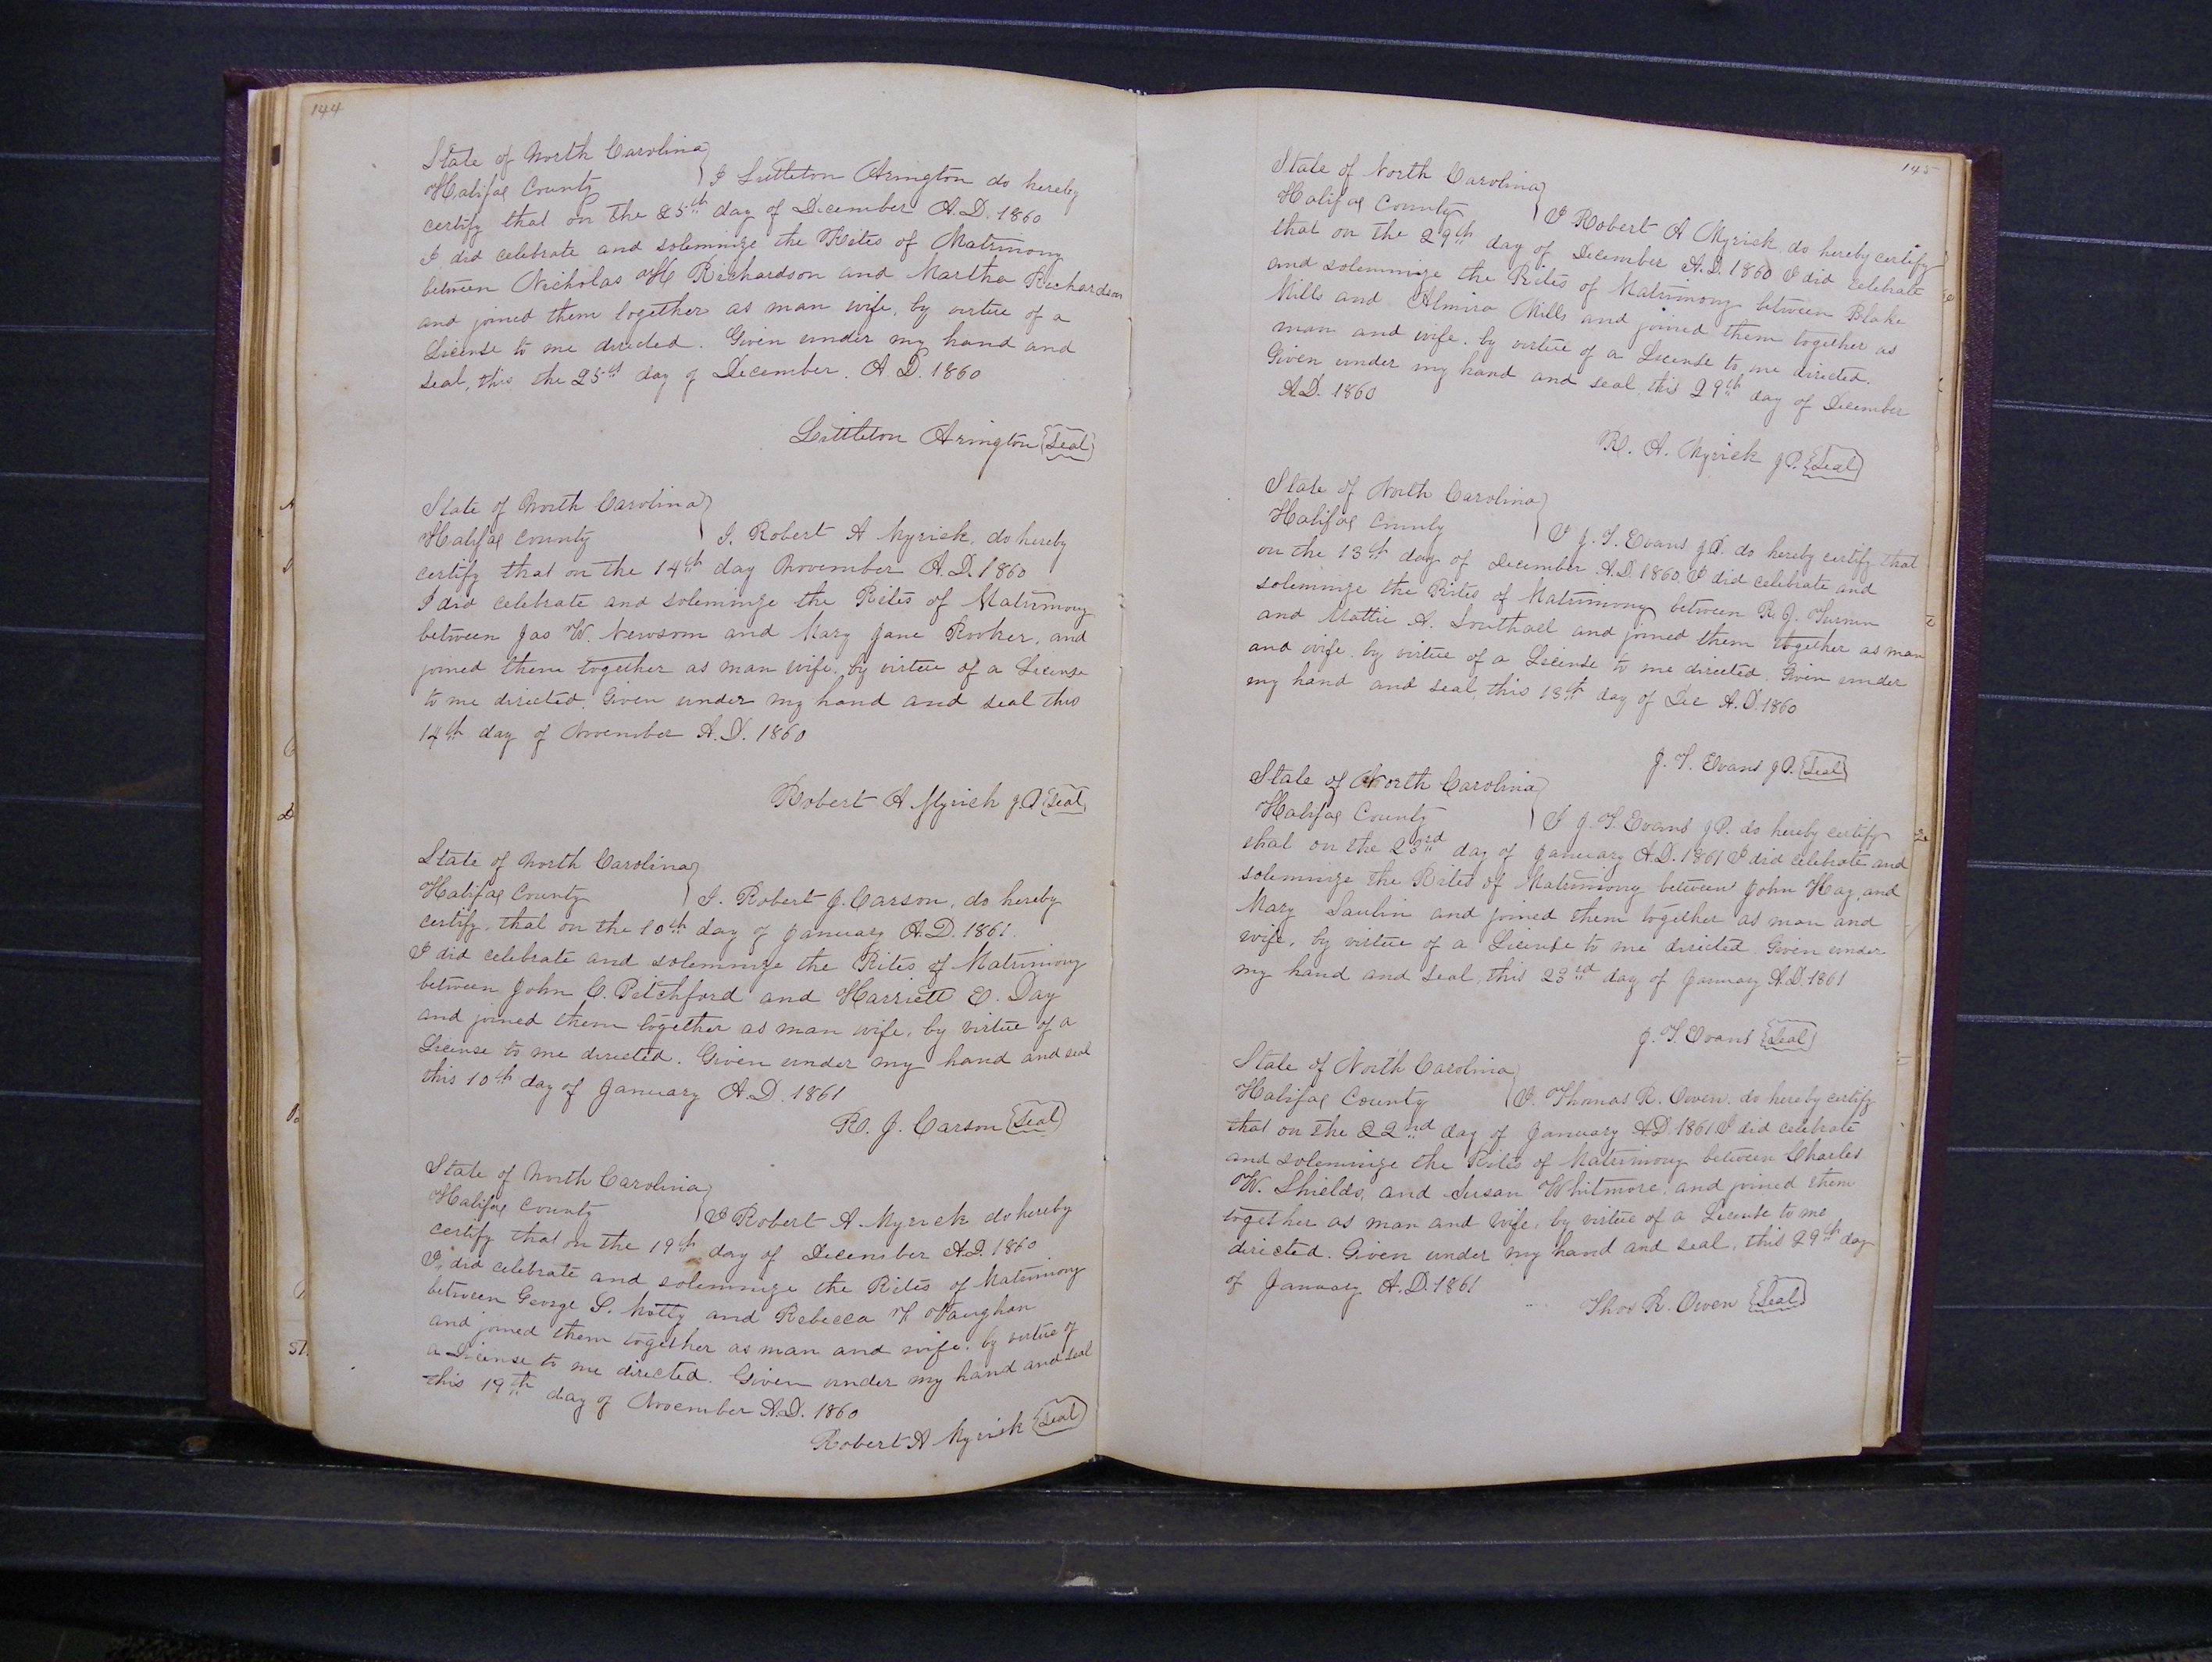 144
State of North Carolina
Halifax County } I Littleton Arington do hereby
certify that on the 25th day of December A.D. 1860
I did celebrate and solemnize the Rites of Matrimony
between Nicholas H Richardson and Martha Richardson
and joined them together as man wife, by virtue of a
License to me directed. Given under my hand and
seal, this the 25th day of December. A D. 1860
Littleton Arington {Seal}
State of North Carolina
Halifax County } I. Robert A Myrick, do hereby
certify that on the 14th day November A.D. 1860
I did celebrate and solemnize the Rites of Matrimony
between Jas W. Newsom and Mary Jane Rooker, and
joined them together as man wife, by virtue of a License
to me directed. Given under my hand and seal this
14th day of November A.D. 1860
Robert A Myrick J.P {Seal}
State of North Carolina
Halifax County } I. Robert J. Carson, do hereby
certify, that on the 10th day of January A.D. 1861.
I did celebrate and solemnize the Rites of Matrimony
between John C. Pitchford and Harriett E. Day
and joined them together as man wife, by virtue of a
License to me directed. Given under my hand and seal
this 10th day of January A.D. 1861
R. J. Carson {Seal}
State of North Carolina
Halifax County } I Robert A Myrick do hereby
certify that on the 19th day of December A.D. 1860
I did celebrate and solemnize the Rites of Matrimony
between George S. and Rebecca Vaughan
and joined them together as man and wife, by virtue of
a License to me directed. Given under my hand and seal
this 19th day of November A.D. 1860
Robert A Myrick {Seal}
145
State of North Carolina
Halifax County } I Robert A Myrick do hereby certify
that on the 29th day of December A.D. 1860 I did celebrate
and solemnize the Rites of Matrimony between Blake
Mills and Almira Mills and joined them together as
man and wife. by virtue of a License to me directed.
Given under my hand and seal this 29th day of December
A.D. 1860
R. A. Myrick J.P. {Seal}
State of North Carolina
Halifax County } I J. T. Evans J.P. do hereby certify that
on the 13th day of December A.D. 1860 I did celebrate and
solemnize the Rites of Matrimony between R. J.
and Mattie A. Southall and joined them together as man
and wife by virtue of a License to me directed. Given under
my hand and seal, this 13th day of Dec A.D. 1860
J. T. Evans J.P. {Seal}
State of North Carolina
Halifax County } I J. T. Evans J.P. do hereby certify
that on the 23rd day of January A.D. 1861 I did celebrate and
solemnize the Rites of Matrimony between John Hay, and
Mary and joined them together as man and
wife, by virtue of a License to me directed. Given under
my hand and seal, this 23rd day of January A.D. 1861
J. T. Evans {Seal}
State of North Carolina
Halifax County } I. Thomas R. Owen. do hereby certify
that on the 22nd day of January A.D. 1861 I did celebrate
and solemnize the Rites of Matrimony between Charles
W. Shields, and Susan Whitmore, and joined them
together as man and wife, by virtue of a License to me
directed. Given under my hand and seal, this 29th day
of January A.D. 1861
Thos R. Owen {Seal}